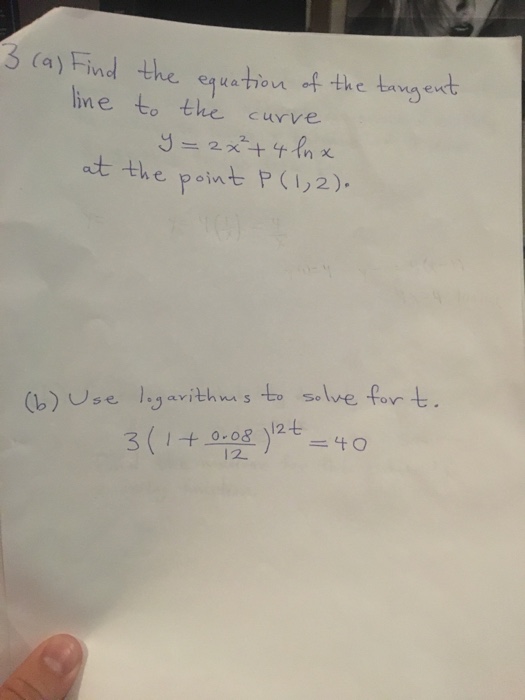 3 (a) Find the equation of the tangent
line to the curve
y = 2x² + 4 ln x
at the point P(1,2).
(b) Use logarithms to solve for t.
3(1 + 0.08/12)^12t = 40